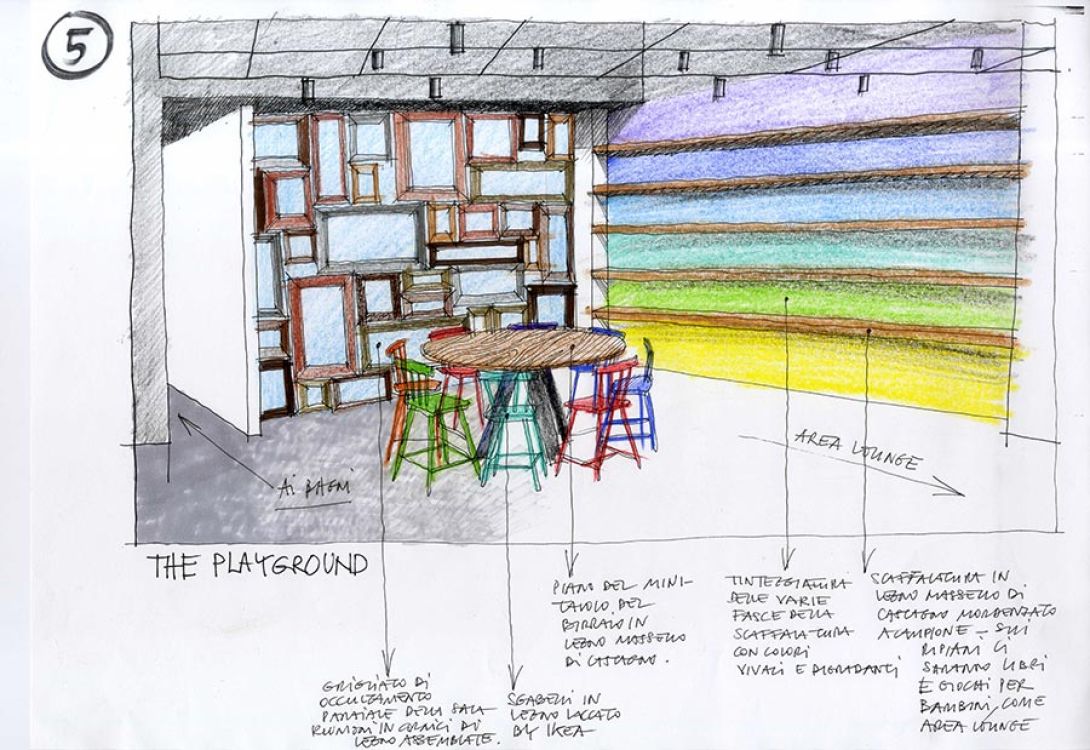 5
AREA LOUNGE
AI BAGNI
THE PLAYGROUND
PIANO DEL MINI-
TAVOLO DEL
BIRRAIO IN
LEGNO MASSELLO
DI CASTAGNO.
TINTEGGIATURA
DELLE VARIE
FASCE DELLA
SCAFFALATURA
CON COLORI
VIVACI E DIGRADANTI
SCAFFALATURA IN
LEGNO MASSELLO DI
CASTAGNO MORDENZATO
A CAMPIONE - SUI
RIPIANI CI
SARANNO LIBRI
E GIOCHI PER
BAMBINI, COME
AREA LOUNGE
GRIGLIATO DI
OCCULTAMENTO
PARZIALE DELLA SALA
RIUNIONI IN CORNICI DI
LEGNO ASSEMBLATE.
SGABELLI IN
LEGNO LACCATO
BY IKEA